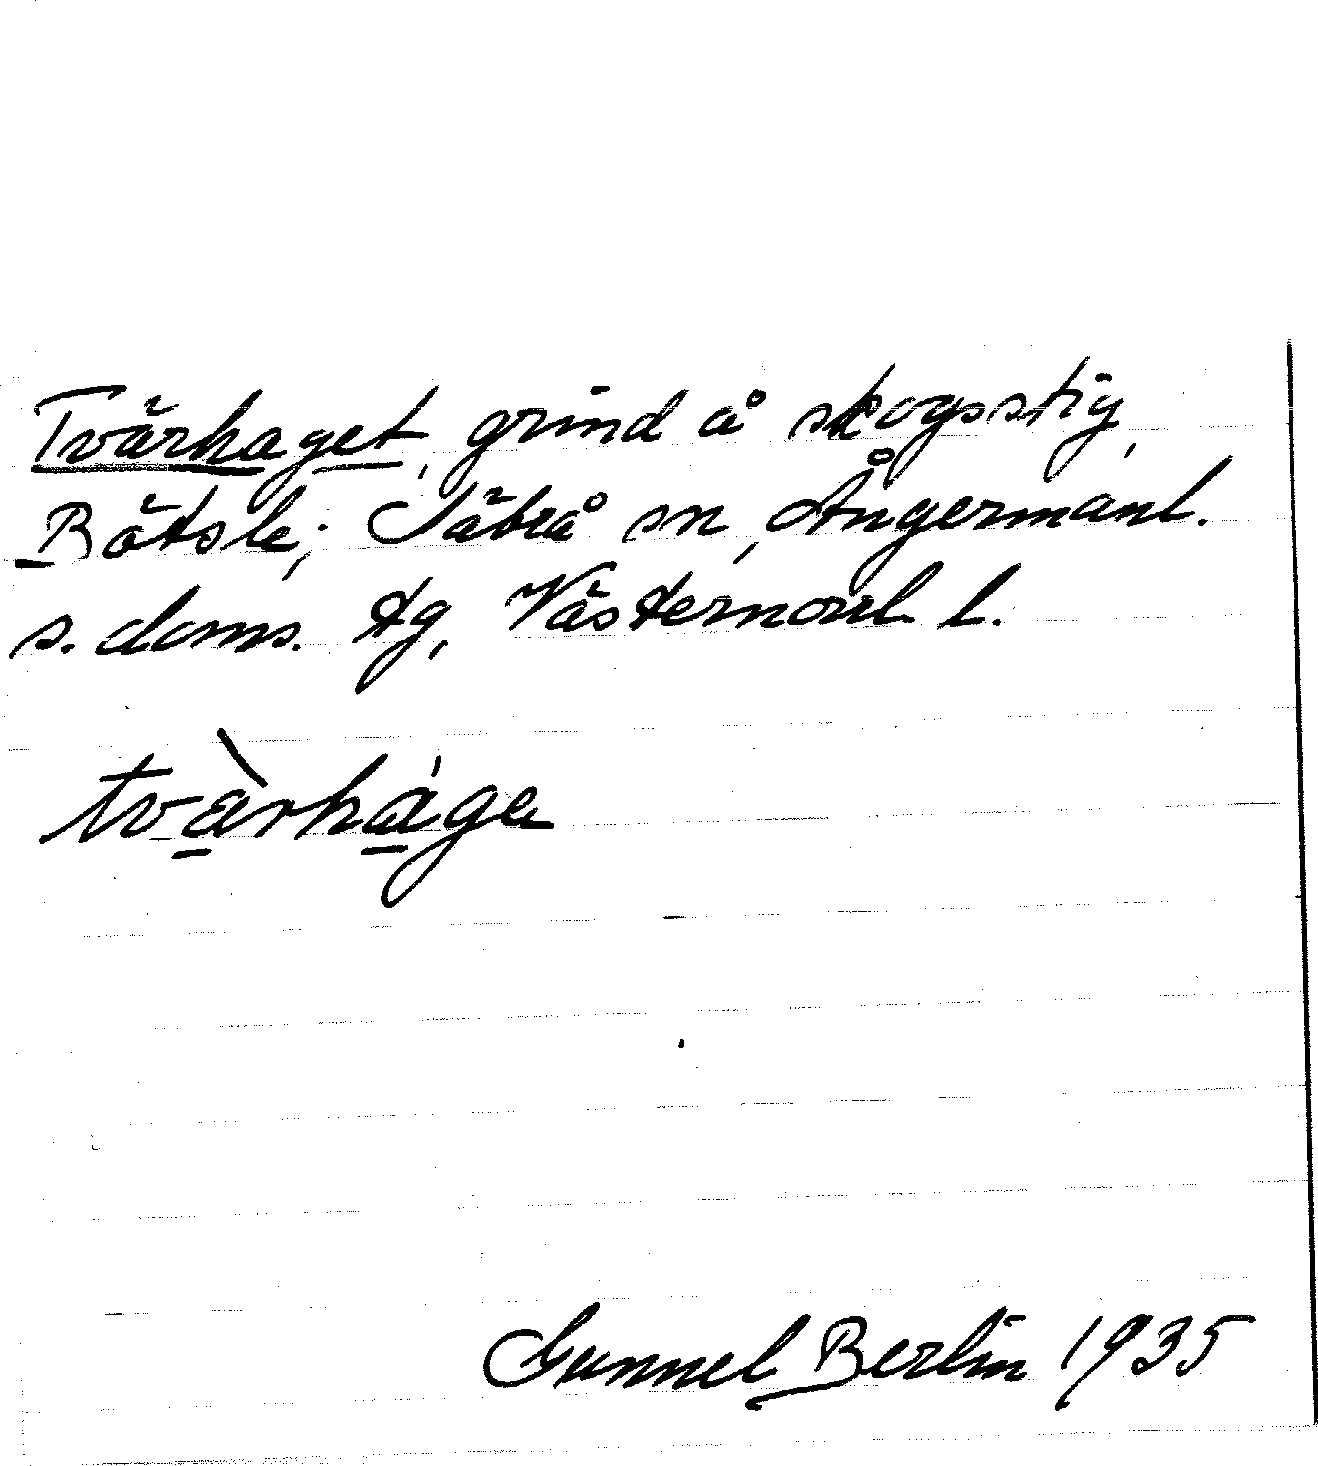 Tvärhaget, grind å skogsstig,
Bötsle; Säbrå sn, Ångermanl.
s. doms. tg, Västernorrl. l.
tvàrháge
Gunnel Berlin 1935